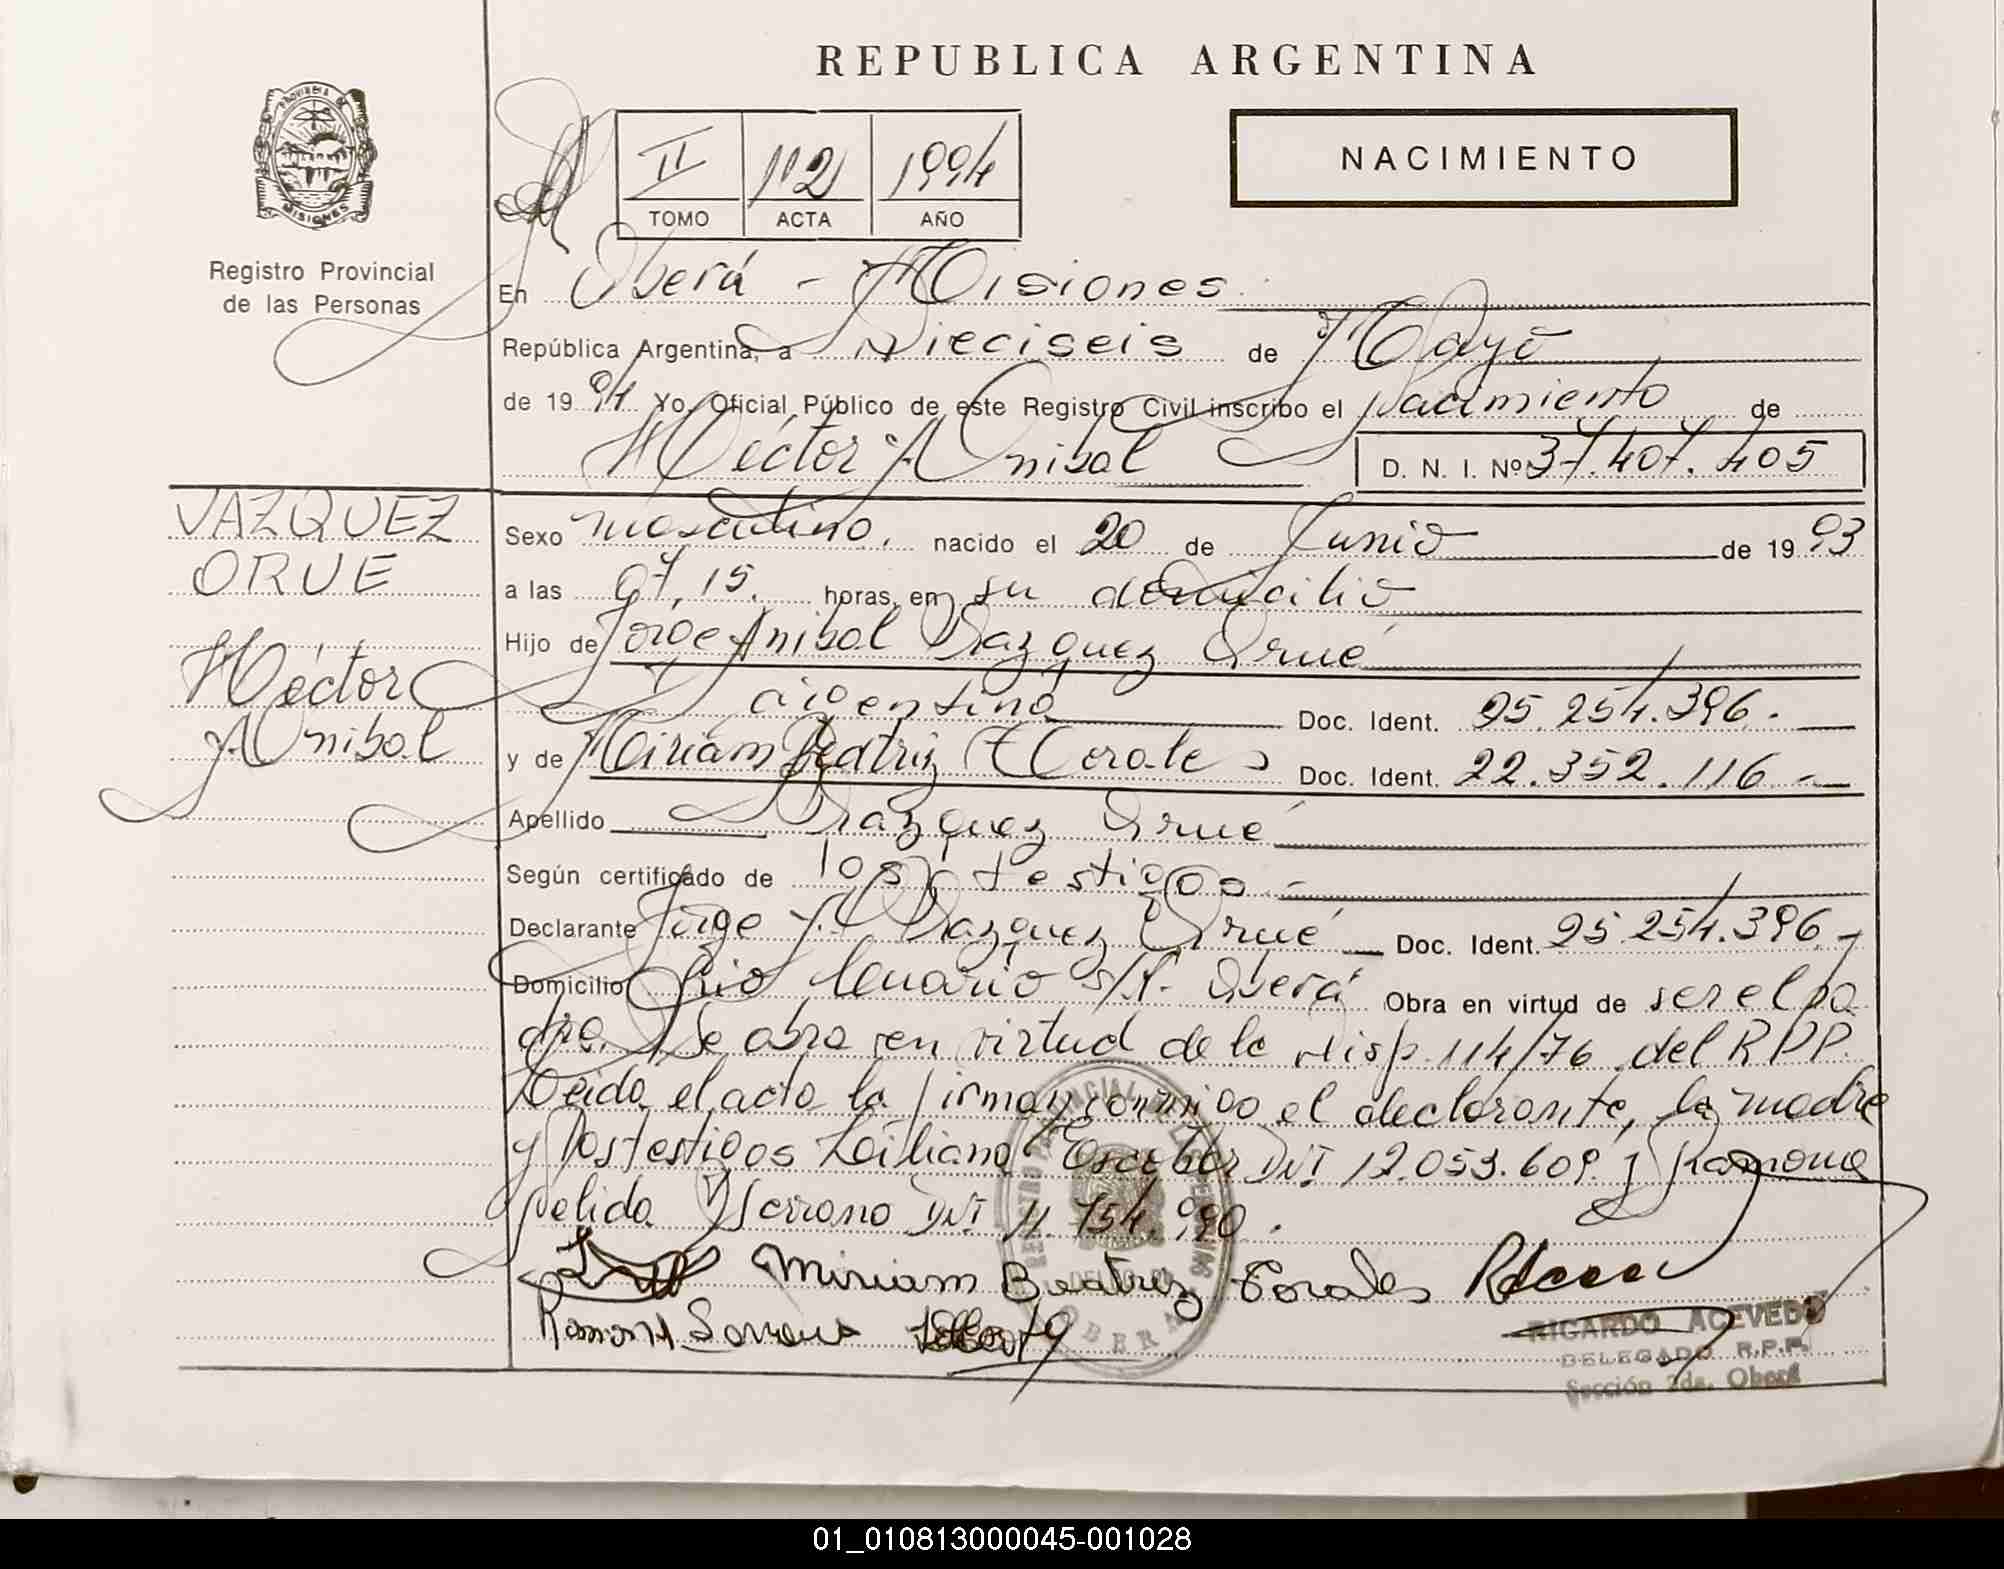 REPUBLICA ARGENTINA
PROVINCIA DE
MISIONES
Registro Provincial
de las Personas
II 112 1994
TOMO ACTA AÑO
NACIMIENTO
En Oberá - Misiones
República Argentina, a Dieciseis de Mayo
de 19 94 Yo, Oficial Público de este Registro Civil inscribo el Nacimiento de
Héctor Anibal D. N. I. Nº 37.407.405
VAZQUEZ
ORUE
Héctor
Anibal
Sexo masculino, nacido el 20 de Junio de 19 93
a las 07,15. horas, en su domicilio
Hijo de Jorge Anibal Vazquez Orué
argentino Doc. Ident. 95.254.396.
y de Miriam Beatriz Torales Doc. Ident. 22.352.116 -
Apellido Vazquez Orué
Según certificado de los testigos -
Declarante Jorge A. Vazquez Orué Doc. Ident. 95.254.396.-
Domicilio Rio s/n. Oberá Obra en virtud de ser el pa
dre. Se obra en virtud de la Disp. 114/76 del RPP.
Leida el acta la firman conmigo el declarante, la madre
y Dos testigos Liliana Escobar DNI 12.053.609. y Ramona
Nelida Serrano DNI 11.754.990.
Miriam Beatriz Torales
Ramona
REGISTRO PROVINCIAL DE LAS PERSONAS
OBERA
RICARDO ACEVEDO
DELEGADO R.P.P.
Sección 2da. Oberá
01_010813000045-001028